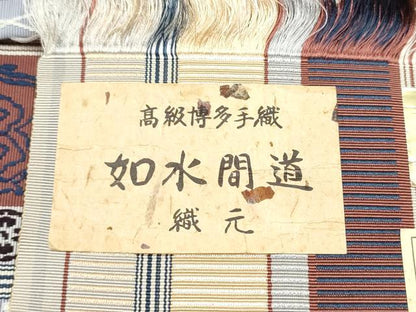 高級博多手織
如水間道
織元